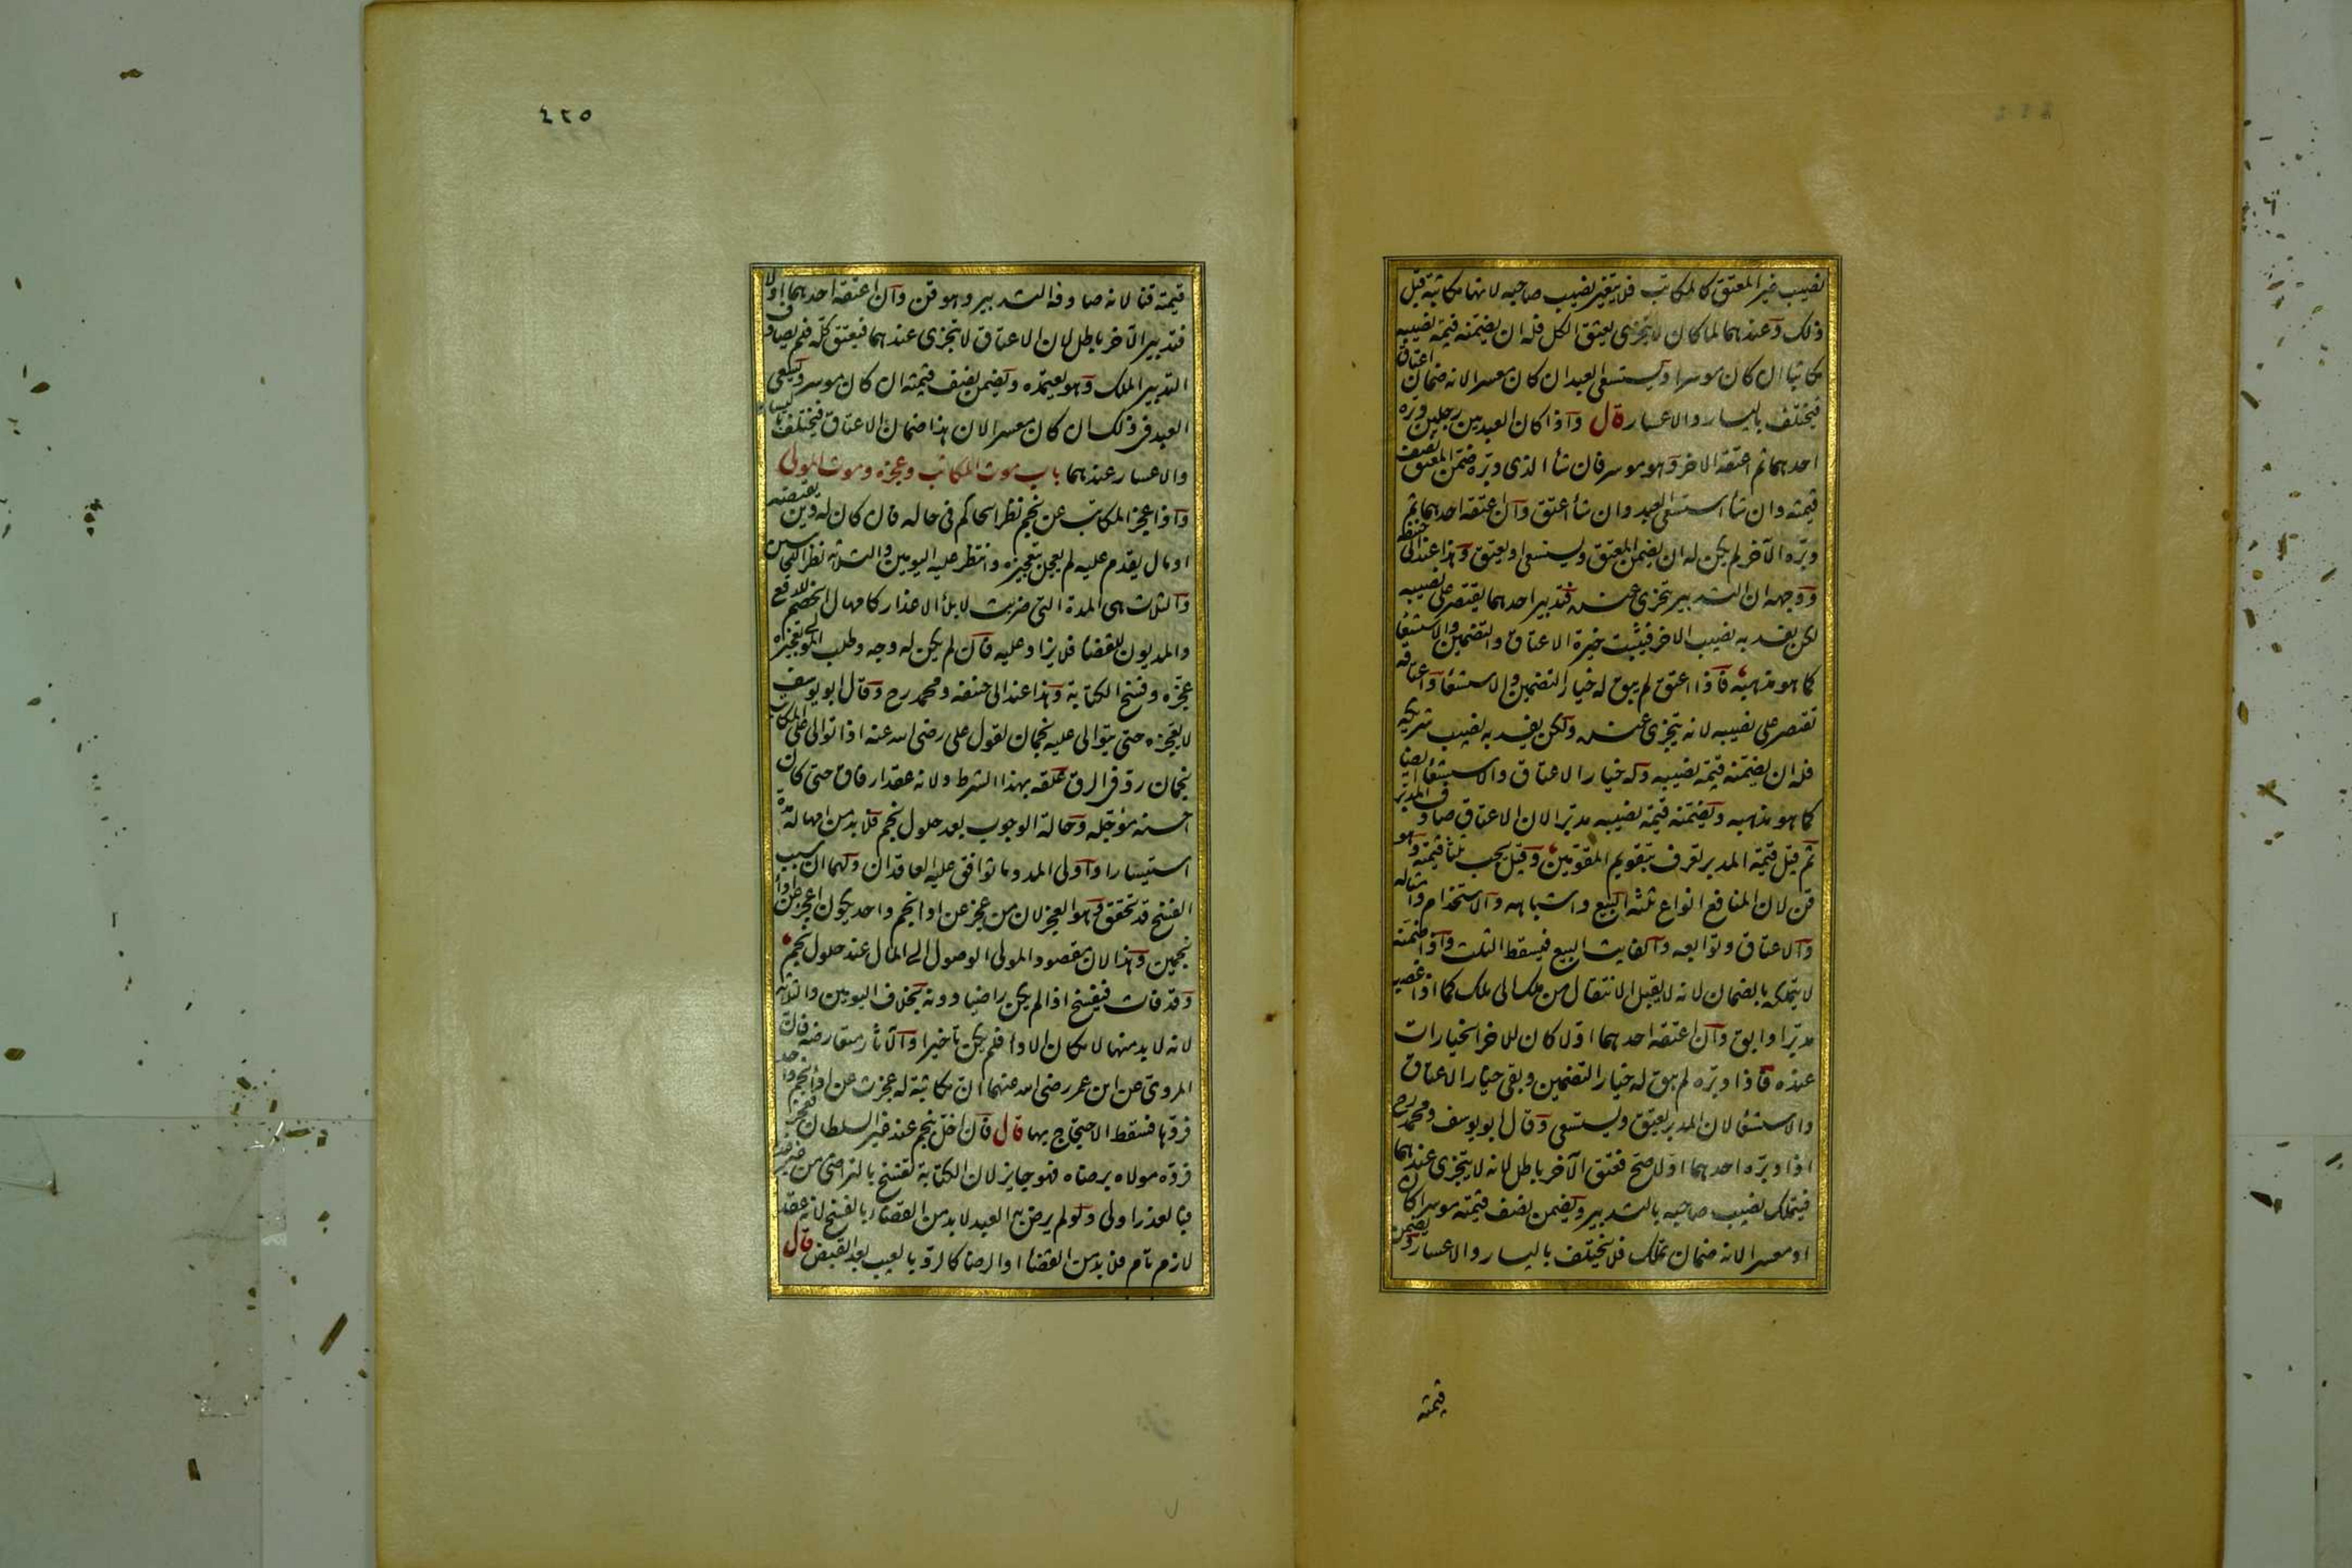 نصيب غير المعتق كالمكاتب فلا يتغير نصيب صاحبه لانها مكاتبة قبل
ذلك وعندهما لما كان لا يتجزى يعتق الكل فله ان يضمنه قيمة نصيبه
مكاتبا ان كان موسرا ويستسعى العبد ان كان معسرا لانه ضمان اعتاق
فيختلف باليسار والاعسار قال واذا كان العبد بين رجلين دبره
احدهما ثم اعتقه الاخر وهو موسر فان شأ الذى دبره ضمن المعتق نصف
قيمته وان شأ استسعى العبد وان شأ اعتق وان اعتقه احدهما ثم
دبره الآخر لم يكن له ان يضمن المعتق ويستسعى او يعتق وهذا عند ابى حنيفة
ووجهه ان التدبير يتجزى عنده فتدبير احدهما يقتصر على نصيبه
لكن يفسد به نصيب الاخر فيثبت خيرة الاعتاق والتضمين والاستسعا
كما هو مذهبه فاذا اعتق لم يبق له خيار التضمين والاستسعا واعتاقه
تقتصر على نصيبه لانه يتجزى عنده ولكن يفسد به نصيب شريكه
فله ان يضمنه قيمة نصيبه وله خيار الاعتاق والاستسعا ايضا
كما هو مذهبه ويضمنه قيمة نصيبه مدبرا لان الاعتاق صادف المدبر
ثم قيل قيمة المدبر تعرف بتقويم المقومين وقيل يجب ثلثا قيمته وهو
قن لان المنافع انواع ثلثة البيع واشباهه والاستخدام وامثاله
والاعتاق وتوابعه والفايت البيع فيسقط الثلث واذا ضمنه
لا يتملكه بالضمان لانه لا يقبل الانتقال من ملك الى ملك كما اذا غصب
مدبرا وابق وان اعتقه احدهما اولا كان للاخر الخيارات
عنده فاذا دبره لم يبق له خيار التضمين وبقى خيار الاعتاق
والاستسعا لان المدبر يعتق ويستسعى وقال ابو يوسف ومحمد رح
اذا دبره احدهما اولا صح فعتق الآخر باطل لانه لا يتجزى عندهما
فيتملك نصيب صاحبه بالتدبير ويضمن نصف قيمته موسرا كان
او معسرا لانه ضمان تملك فلا يختلف باليسار والاعسار ويضمن
قيمته
٤٢٥
قيمته قنا لانه صادفه التدبير وهو قن وان اعتقه احدهما اولا
فتدبير الآخر باطل لان الاعتاق لا يتجزى عندهما فيعتق كله فلم يصادف
التدبير الملك وهو يعتمده ويضمن نصف قيمته ان كان موسرا ويسعى
العبد فى ذلك ان كان معسرا لان هذا ضمان الاعتاق فيختلف باليسار
والاعسار عندهما باب موت المكاتب وعجزه وموت المولى
واذا عجز المكاتب عن نجم نظر الحاكم فى حاله فان كان له دين يقتضيه
او مال يقدم عليه لم يعجل بتعجيزه وانتظر عليه اليومين والثلاثه نظرا للجانبين
والثلاث هى المدة التى ضربت لابلأ الاعذار كامهال الخصم للدفع
والمديون للقضأ فلا يزاد عليه فان لم يكن له وجه وطلب المولى تعجيزه
عجزه وفسخ الكتابة وهذا عند ابى حنيفه ومحمد رح وقال ابو يوسف
لا يعجزه حتى يتوالى عليه نجمان لقول على رضى الله عنه اذا توالى على المكاتب
نجمان رد فى الرق علقه بهذا الشرط ولانه عقد ارفاق حتى كان
احسنه مؤجله وحالة الوجوب بعد حلول نجم فلا بد من امهال مدة
استيسارا واولى المدد ما توافق عليه العاقدان ولهما ان سبب
الفسخ قد تحقق وهو العجز لان من عجز عن ادا نجم واحد يكون اعجز عن ادأ
نجمين وهذا لان مقصود المولى الوصول الى المال عند حلول نجم
وقد فات فيفسخ اذا لم يكن راضيا دونه بخلاف اليومين والثلاثه
لانه لا بد منها لامكان الادا فلم يكن تاخيرا والآثار متعارضه فان
المروى عن ابن عمر رضى الله عنهما ان مكاتبة له عجزت عن ادأ نجم واحد
فردها فسقط الاحتجاج بها قال فان اخل بنجم عند غير السلطان فعجز
فرده مولاه برضاه فهو جايز لان الكتابة تفسخ بالتراضى من غير عذر
فبالعذر اولى ولو لم يرض به العبد لا بد من القضاء بالفسخ لانه عقد
لازم تام فلا بد من القضأ او الرضا كالرد بالعيب بعد القبض قال